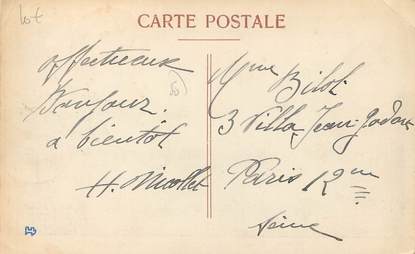 lot
CARTE POSTALE
affectueux
Bonjour.
a bientôt
H. Nicollet
Mme Bilot
3 Villa Jean-Godart
Paris 12me
Seine